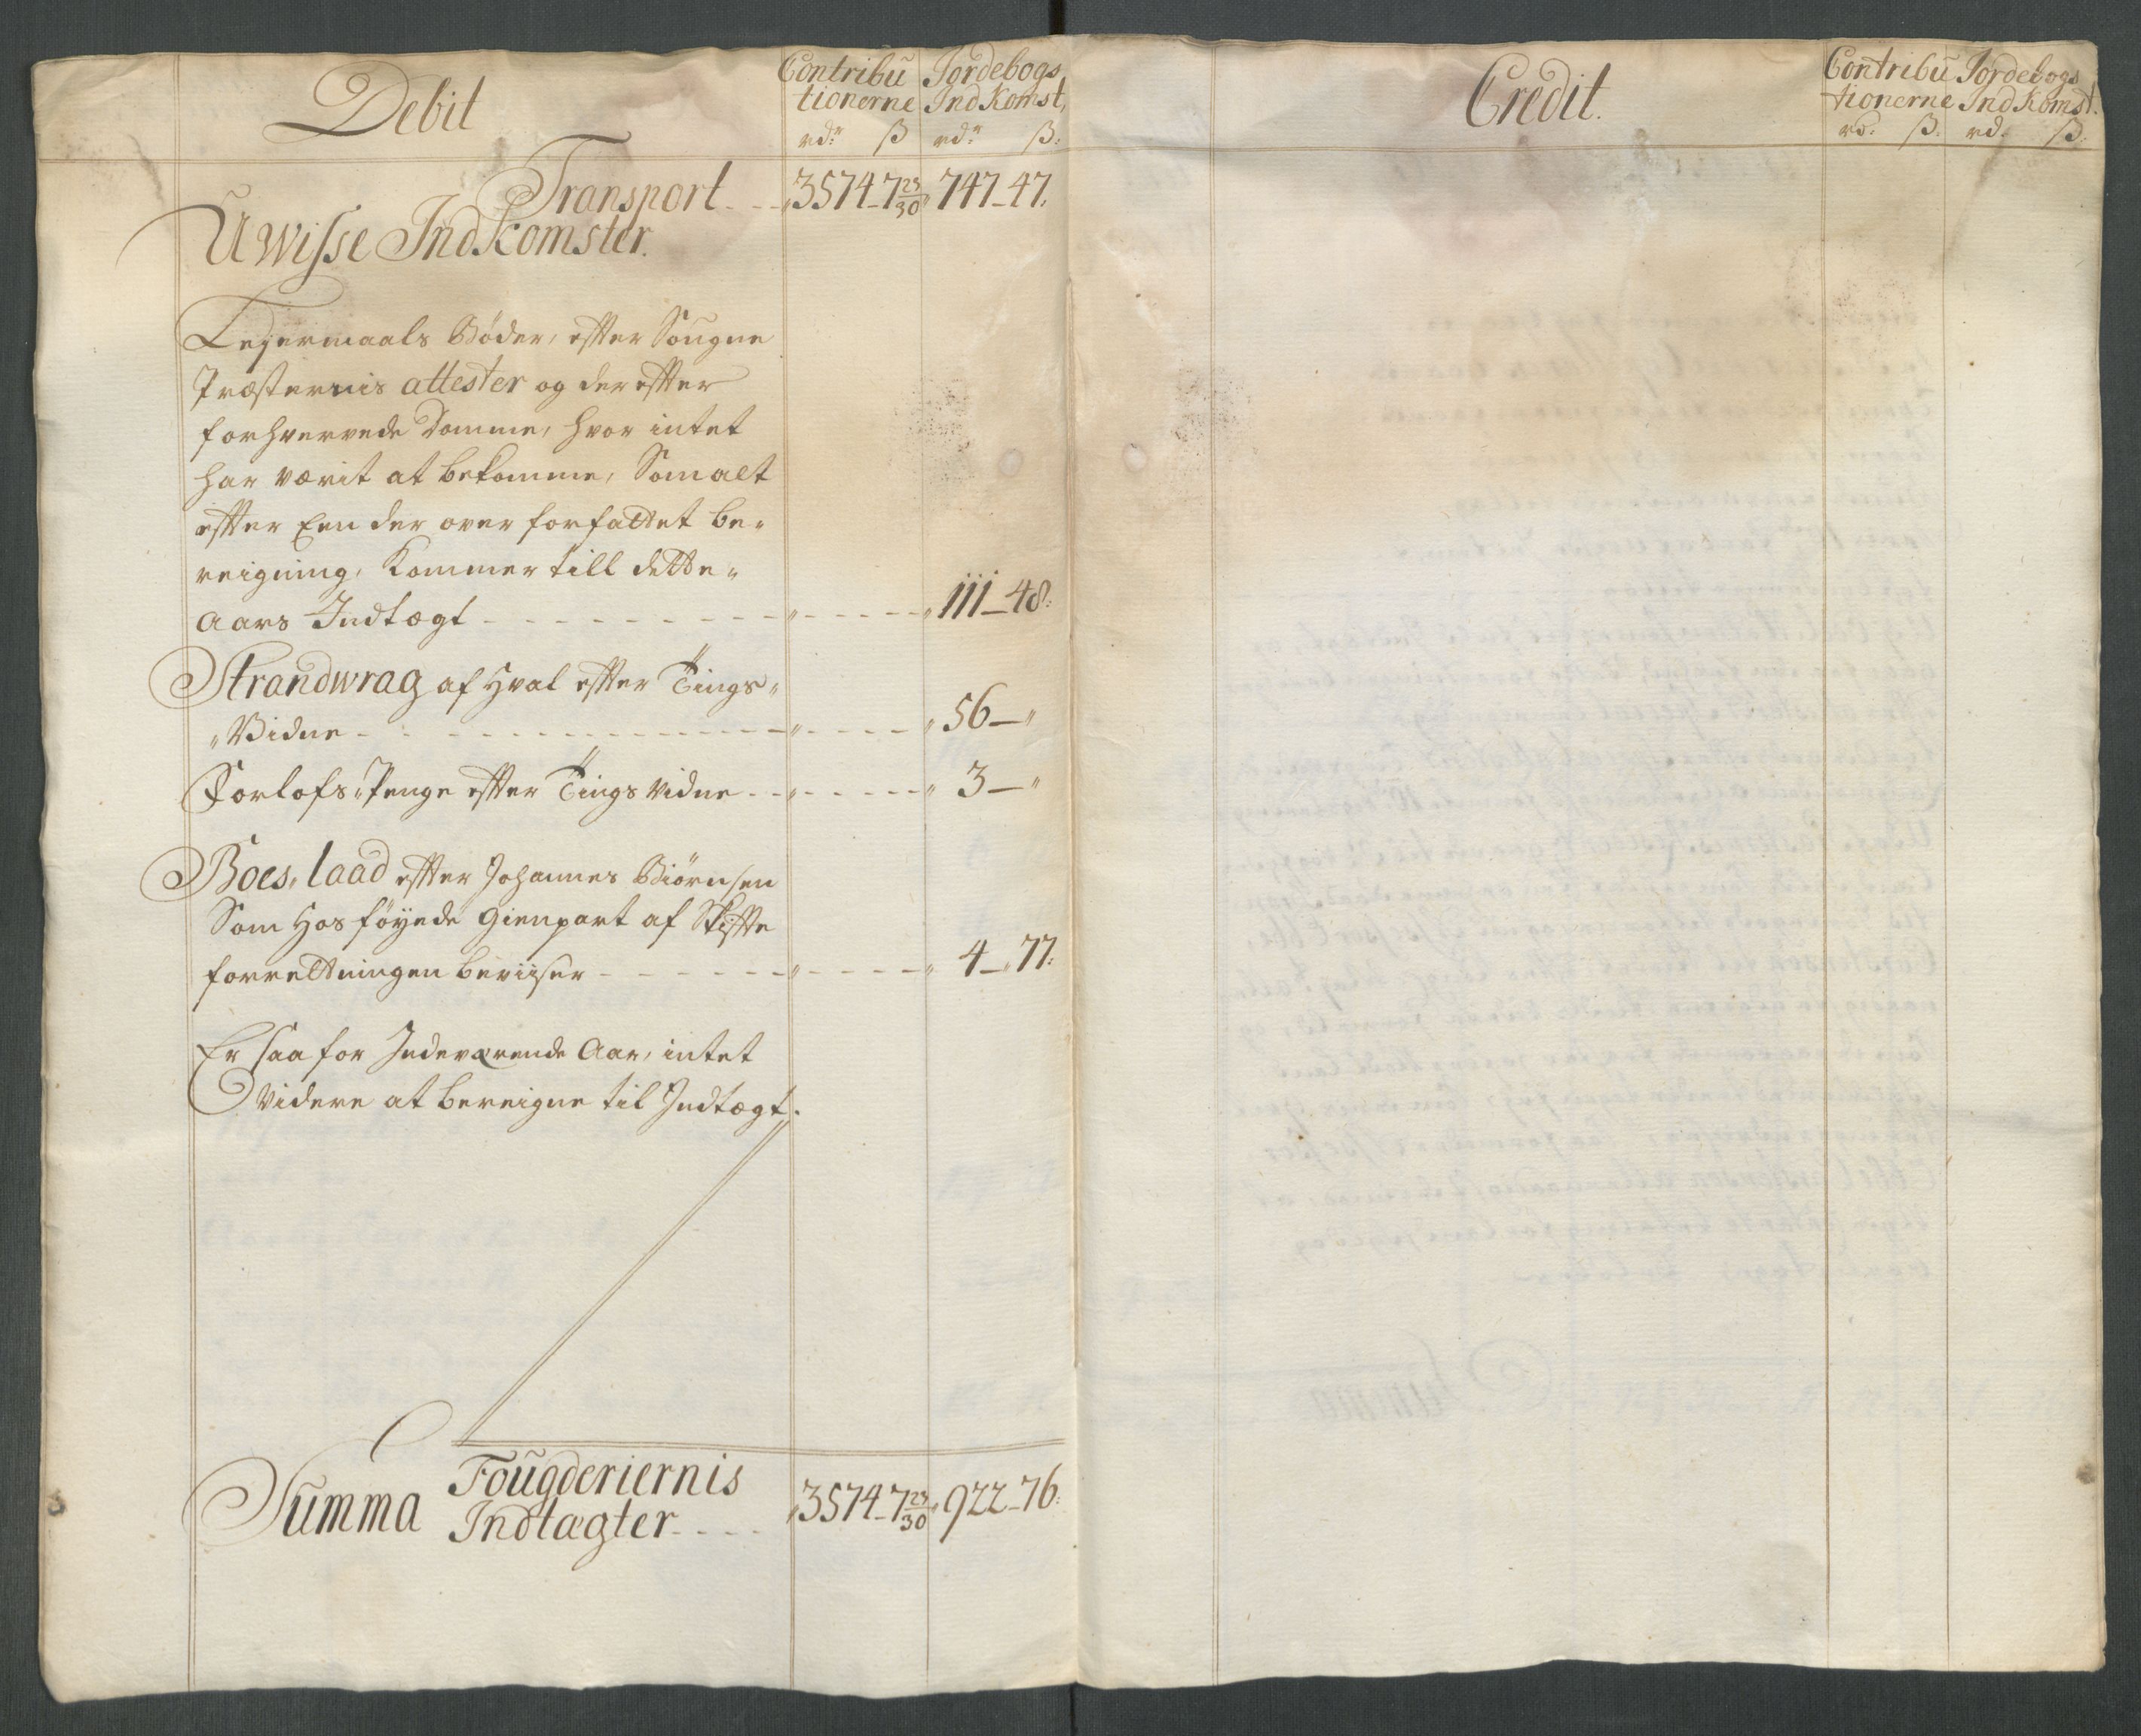 Debit
Contribu Jordebogs
tionerne IndKomst,
rdr ß rdr ß:
Transport - - 3574-7 23/30 747-47.
Uwisse IndKomster.
Lejermaals Bøder, effter Sougne
Præsternis attester og der effter
forhvervede Domme, hvor intet
har værit at bekomme, Som alt
effter Een der over forfattet be-
reigning, Kommer till dette
Aars Indtægt - - - - 111-48:
Strandwrag af Hval effter Tings-
Vidne - - - - 56-"
Forlofs Penge effter Tings Vidne - - - - 3-"
Boes, laad effter Johannes Biørnsen
Som Hos føyede Gienpart af Skiffte
forrettningen beviiser - - - - 4-77:
Er saa for Indeværende Aar, intet
Videre at bereigne til Indtægt.
Summa Fougderiernis
Indtægter - - - - 3574-7 23/30 922-76:
Credit.
Contribu Jordebogs
tionerne IndKomst.
rd: ß: rd: ß: